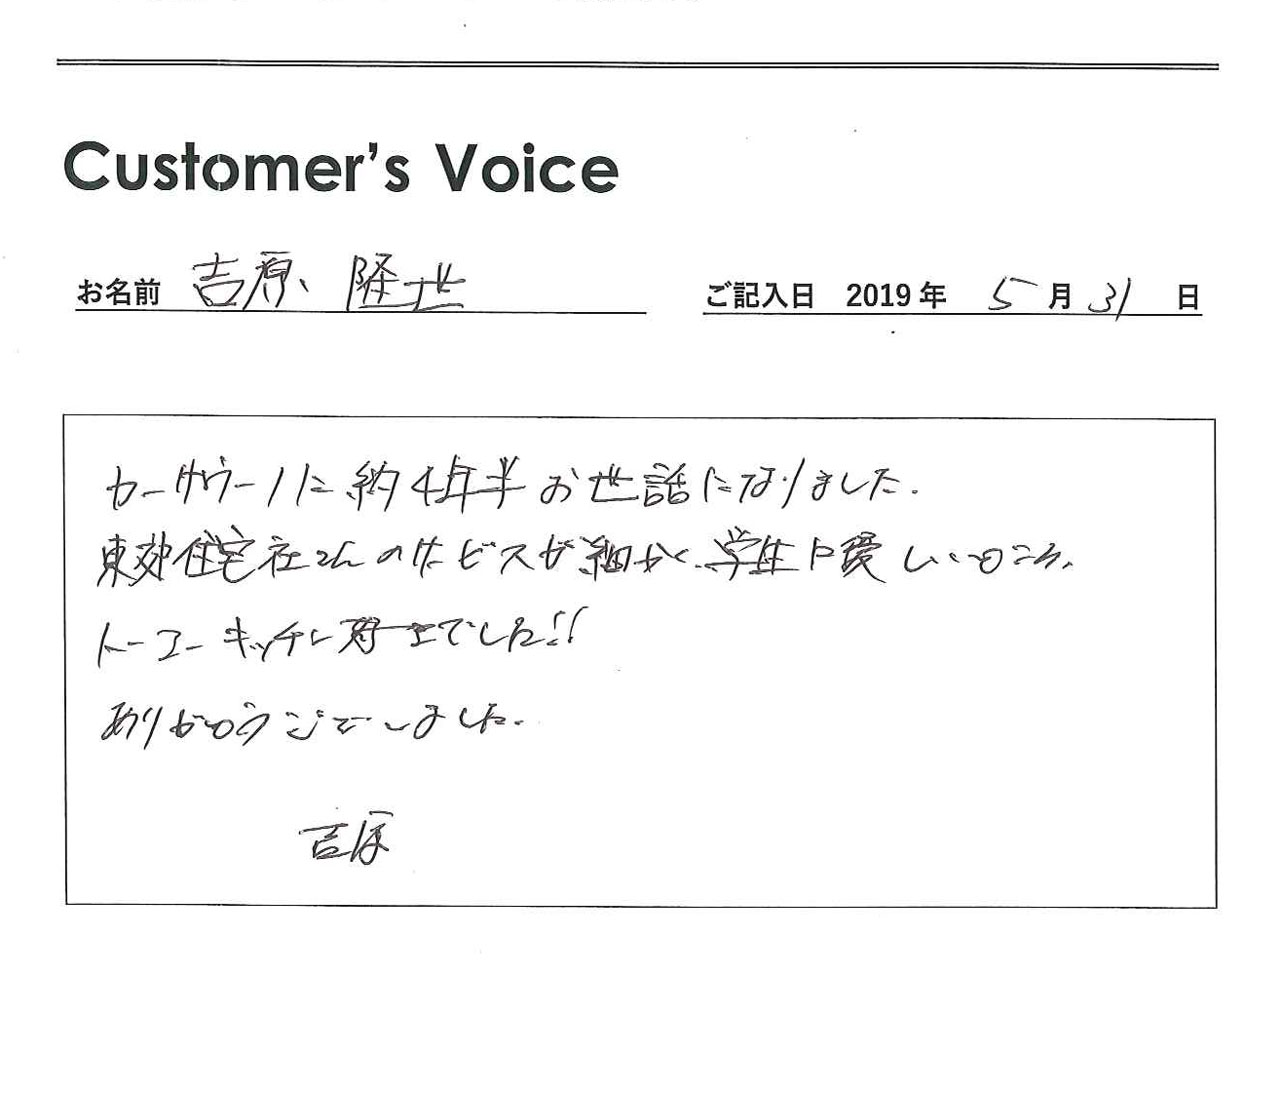 Customer's Voice
お名前 吉原 隆世
ご記入日 2019年 5月31日
カーサウーノに約4年半お世話になりました.
東郊住宅社さんのサービスが細かく、学生に優しいところ、
トーコーキッチンでした!!
ありがとうございました.
吉原